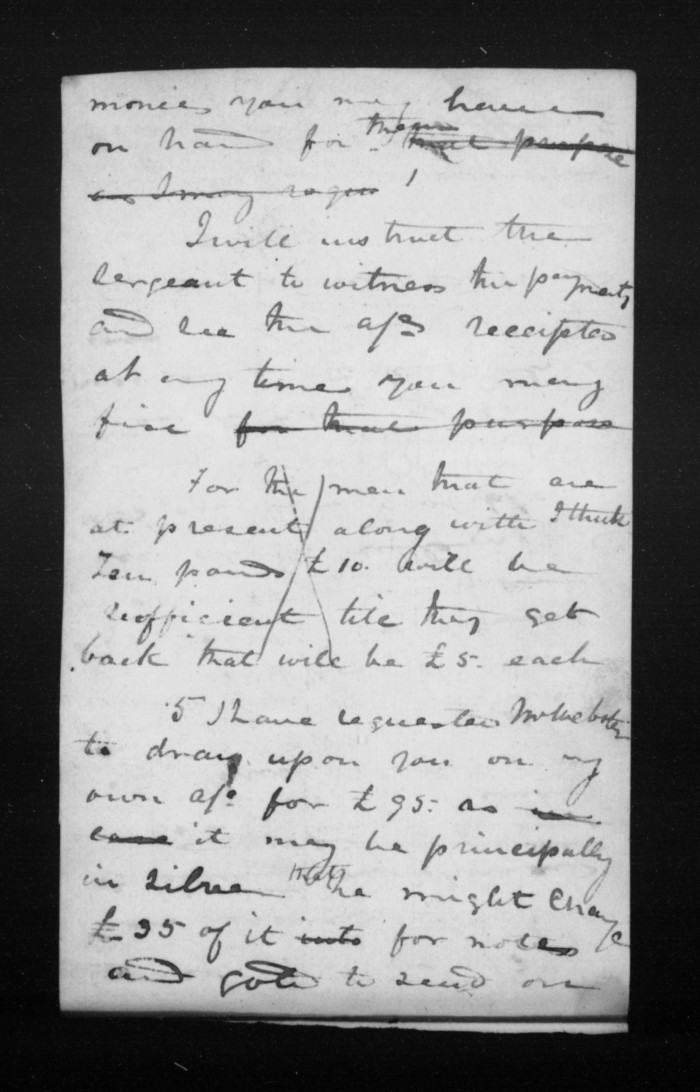 monies you may have
on hand for them that purpose
as I may requir
I will instruct the
sergeant to witness the payments
and see the a/cs receipted
at any time you may
fix for that purpose
For the men that are
at present along with I think
Ten pounds £10. will be
sufficient till they get
back that will be £5. each
5 I have requested Mr Webster
to draw upon you on my
own a/c for £95. as in
case it may be principally
in silver that he might change
£35 of it into for notes
and gold to send on